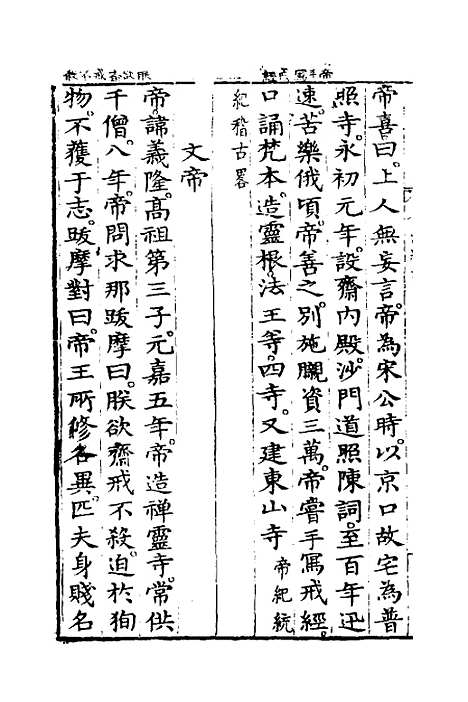 帝手寫戒經
朕欲齋戒不殺
帝喜曰。上人無妄言。帝為宋公時。以京口故宅為普
照寺。永初元年。設齋內殿。沙門道照陳詞。至百年迅
速。苦樂俄頃。帝善之。別施嚫資三萬。帝嘗手寫戒經。
口誦梵本。造靈根。法王等。四寺。又建東山寺 帝紀統
紀稽古畧
文帝
帝諱義隆。高祖第三子。元嘉五年。帝造禪靈寺。常供
千僧。八年。帝問求那跋摩曰。朕欲齋戒不殺。迫於狥
物。不獲于志。跋摩對曰。帝王所修各異。匹夫身賤名